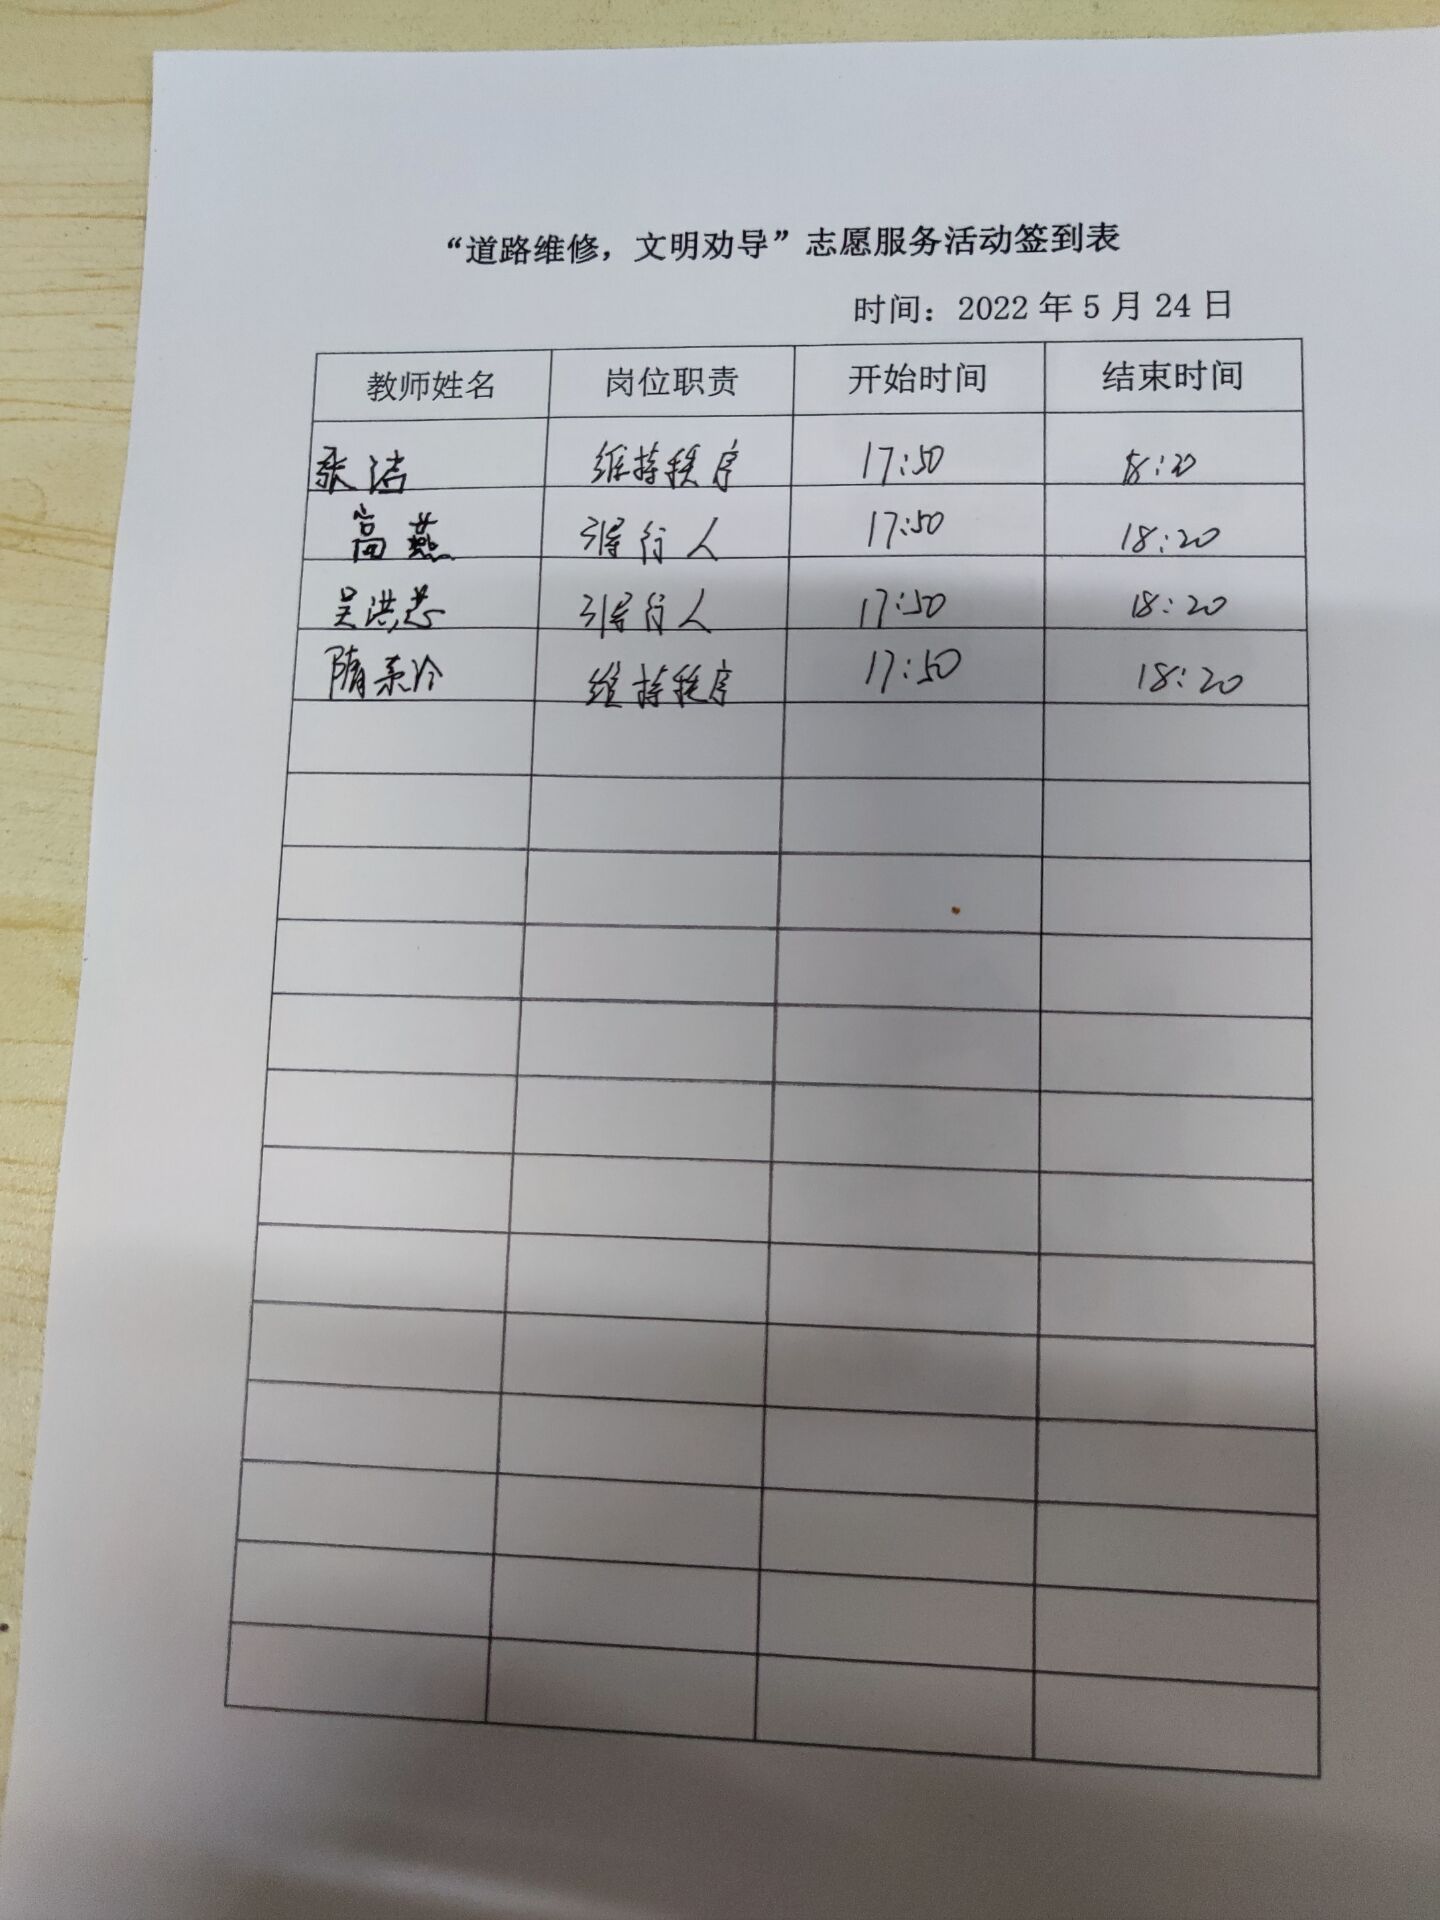 “道路维修，文明劝导”志愿服务活动签到表
时间：2022 年 5 月 24 日
教师姓名 岗位职责 开始时间 结束时间
张洁 维持秩序 17:50 18:20
高燕 引导行人 17:50 18:20
吴洪 引导行人 17:50 18:20
隋 维持秩序 17:50 18:20